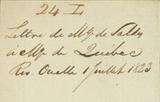 24 I
Lettre de Mgr de Saldes
à Mgr de Québec
Riv Ouelle 1 juillet 1823